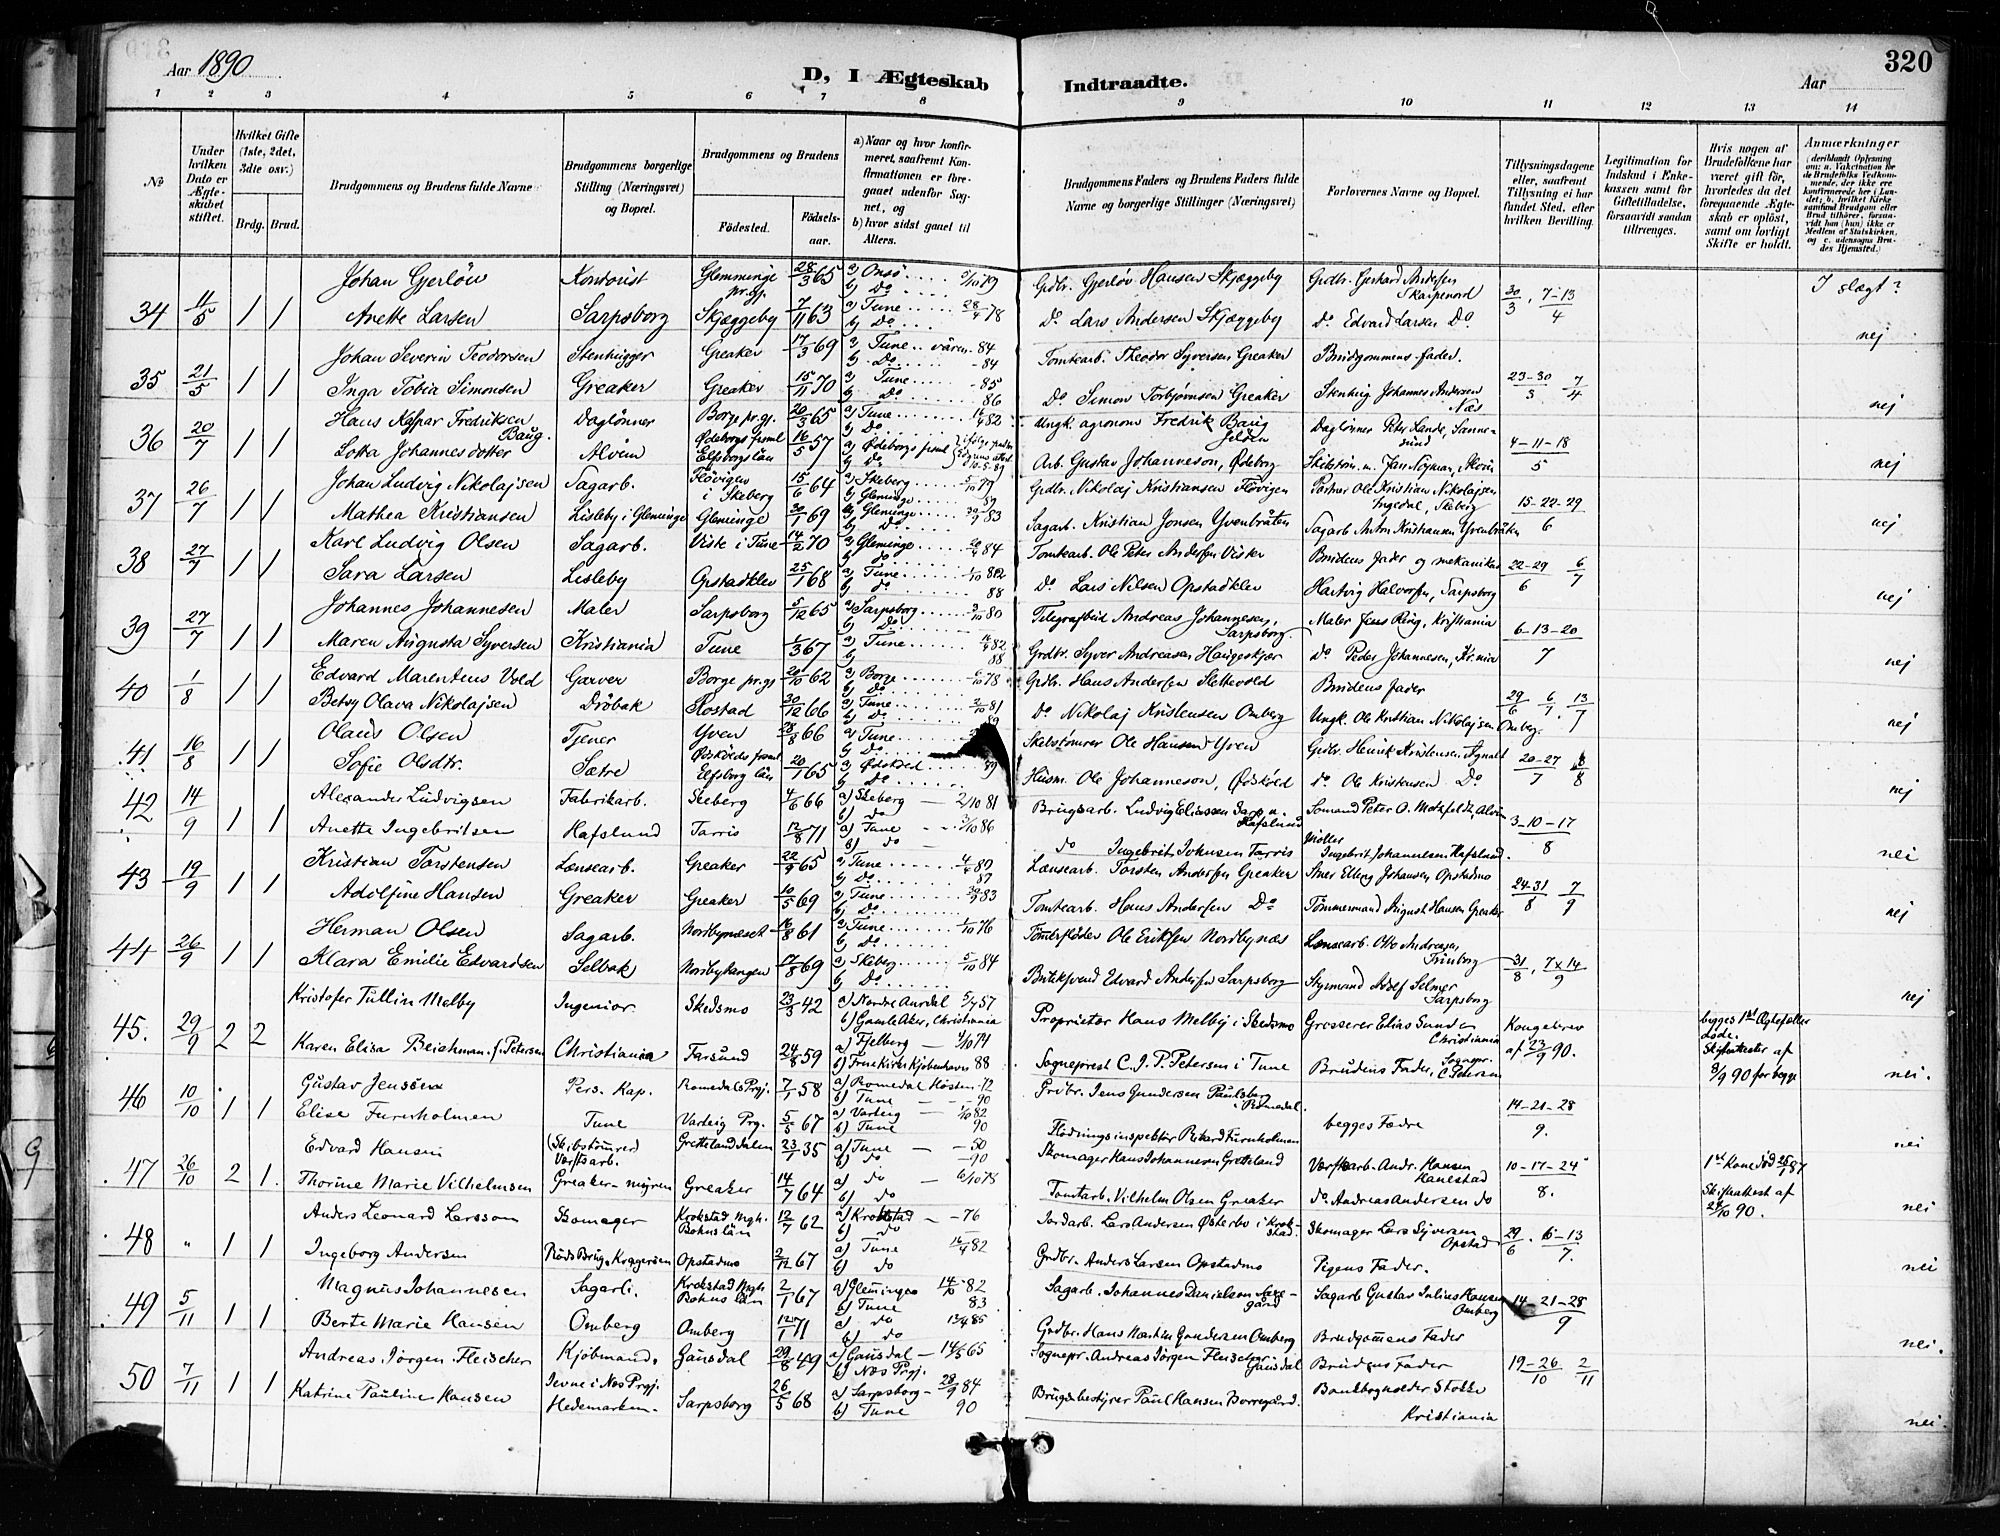 320
Aar 1890
D, I Ægteskab Indtraadte.
Aar
1 2 3 4 5 6 7 8 9 10 11 12 13 14
No
Under hvilken Dato er Ægteskabet stiftet.
Hvilket Gifte (1ste, 2det, 3die osv.)
Brdg. Brud.
Brudgommens og Brudens fulde Navne
Brudgommens borgerlige Stilling (Næringsvei) og Bopæl.
Brudgommens og Brudens
Fødested. Fødselsaar.
a) Naar og hvor konfirmeret, saafremt Konfirmationen er foregaaet udenfor Sognet, og
b) hvor sidst gaaet til Alters.
Brudgommens Faders og Brudens Faders fulde Navne og borgerlige Stillinger (Næringsvei)
Forlovernes Navne og Bopæl.
Tillysningsdagene eller, saafremt Tillysning ei har fundet Sted, efter hvilken Bevilling.
Legitimation for Indskud i Enkekassen samt for Giftetilladelse, forsaavidt saadan tiltrænges.
Hvis nogen af Brudefolkene har været gift før, hvorledes da det foregaaende Ægteskab er opløst, samt om lovligt Skifte er holdt.
Anmærkninger
(deriblandt Oplysning om: a. Vakcination for de Brudefolks Vedkommende, der ikke ere konfirmerede her i Landet; b. hvilket Kirkesamfund Brudgom eller Brud tilhører, forsaavidt han (hun) ikke er Medlem af Statskirken, og c. udensogns Brudes Hjemsted.)
Johan Gjerløw Kontorist Glemminge pr.gj. 28/3 65 a) Onsø 79 b) Do Grdbr. Gjerløv Hansen Skjæggeby Grdbr. Gerhard Andersen I slægt?
34 11/5 1 1 Anette Larsen Sarpsborg Skjæggeby 7/11 63 a) Tune 78 b) Do Do Lars Andersen Skjæggeby Do Edvard Larsen Do 30/3, 7-13/4 nej
Johan Severin Teodorsen Stenhugger Greaker 17/3 69 a) Tune våren 84 b) Do 84 Tomtearb. Theodor Syversen Greaker Brudgommens fader.
35 21/5 1 1 Inga Tobia Simonsen Greaker Greaker 15/11 70 a) Tune 85 b) Do 86 Do Simon Torbjørnsen Greaker Stenhug Johannes Andersen Næs 23-30/3 7/4 nej
Hans Kaspar Fredriksen Baug. Daglønner Borge pr.gj. 20/3 65 a) Tune 82 b) Do Ungk. agronom Fredrik Baug Daglønner Peter Lande, Sannesund
36 20/7 1 1 Lotta Johannesdotter Alvim Ødeborgs fsml Elfsborgslän 16/5 57 a) Ødeborgs fsml b) Do Arb. Gustav Johanneson, Ødeborg 4-11-18/5 nej
Johan Ludvig Nikolajsen Sagarb. Fløvigen i Skeberg 15/6 64 a) Skeberg 5/10 79 b) Gleminge 89 Grdbr. Nikolaj Kristiansen Fløvigen Ole Kristian Nikolajsen Ingedal, Skeberg
37 26/7 1 1 Mathea Kristiansen Lisleby i Gleminge Gleminge 30/1 69 a) Gleminge 83 b) Do Sagarb. Kristian Jonsen Yvenbråten Sagarb Anton Kristiansen Yvenbråten 15-22-29/6 nej
Karl Ludvig Olsen Sagarb. Viste i Tune 14/2 70 a) Gleminge 84 b) do Tomtearb. Ole Peter Andersen Vister Brudens fader og mekanikus
38 27/7 1 1 Sara Larsen Lisleby Opstadklev 25/1 68 a) Tune 1/10 82 b) do 88 Do Lars Nilsen Opstadklev Hartvig Halvorsen, Sarpsborg 22-29/6 6/7 nej
Johannes Johannesen Maler Sarpsborg 5/12 65 a) Sarpsborg 3/10 80 b) Do Telegrafbud Andreas Johannesen, Sarpsborg Maler Jens Ring, Kristiania
39 27/7 1 1 Maren Augusta Syversen Kristiania Tune 1/3 67 a) Tune 82 b) 88 Grdbr. Syver Andreasen Haugeskjær Do Peder Johannesen, Kr.nia 6-13-20/7 nej
Edvard Marentius Vold Garver Borge pr.gj. 20/10 62 a) Borge 78 b) Do Grdbr. Hans Andersen Slettevold Brudens fader
40 1/8 1 1 Betsy Olava Nikolajsen Drøbak Rostad 30/12 66 a) Tune 2/10 81 b) Do 89 Do Nikolaj Kristensen Omberg Ungk. Ole Kristian Nikolajsen Omberg 29/6 6/7 13/7 nej
Olaus Olsen Tjener Yven 28/8 66 a) Tune b) Do Skibstømrer Ole Hansen Yven Grdbr. Henrik Kristensen Agnalt
41 16/8 1 1 Sofie Olsdtr. Sætre Ødskölds fsml Elfsborg län 20/1 65 a) Ødsköld 89 b) Do Husm. Ole Johanneson, Ødsköld do Ole Kristensen Do 20-27/7 8/8 nej
Alexander Ludvigsen Fabrikarb. Skeberg 4/6 66 a) Skeberg 2/10 81 b) do Brugsarb. Ludvig Eliassen Sarp u. Hafslund Somand Peter O. Motzfeldt, Alvim
42 14/9 1 1 Anette Ingebritsen Hafslund Tarris 12/8 71 a) Tune 3/10 86 b) do do Ingebrit Johnsen Tarris Møller Ingebrit Johannesen Hafslund. 3-10-17/8 nei
Kristian Torstensen Lænsearb. Greaker 22/9 65 a) Tune 80 b) Do 87 Lænsearb. Torsten Andersen Greaker Elling Johansen Opstadmo
43 19/9 1 1 Adolfine Hansen Greaker Greaker 10/5 69 a) Tune 83 b) Do Tomtearb. Hans Andersen Do Tømmermand August Hansen Greaker 24-31/8 7/9 nej
Herman Olsen Sagarb. Nordbynæset 16/8 61 a) Tune 1/10 76 b) Do Tømerfløder Ole Eriksen Nordbynæs Lænsearb. Otto Andreasen Trinborg
44 26/9 1 1 Klara Emilie Edvardsen Selbak Nordbyhangen 17/8 69 a) Skeberg 5/10 84 b) Do Edvard Andersen Sarpsborg Styrmand Adolf Selmer Sarpsborg 31/8, 7 x 14/9 nej
Kristofer Tullin Melby Ingeniør Skedsmo 23/3 42 a) Nordre Aurdal 5/7 57 b) Gamle Aker, Christiania Proprietær Hans Melby i Skedsmo Grosserer Elias Sunde Christiania Kongebrev begges 1st Ægtefæller døde.
45. 29/9 2 2 Karen Elisa Beichman f. Petersen Christiania Farsund 24/8 59 a) Fjelberg 4/10 74 b) Fruekirken Kjøbenhavn 88 Sogneprest C. J. P. Petersen i Tune Brudens Fader, Sognepr. C Petersen af 23/9 90. Skifteattester af 8/9 90 for begge nei.
Gustav Jensen Pers. Kap. Romedals Prgj. 7/1 58 a) Romedal Høsten 72 b) Tune 90 Grdbr. Jens Gundersen Paulsberg i Romedal
46 10/10 1 1 Elise Furuholmen Tune Varteig Prg. 5/5 67 a) Varteig 1/10 82 b) Tune 90 Flødningsinspektør Rikard Furuholmen begges Fædre 14-21-28/9. nei
Edvard Hansen (Skibstømrer) Værftsarb. Gretteland dalen 23/1 35 a) Tune 50 b) do 90 Skomager Hans Johannesen Gretteland Værftsarb. Andr. Hansen Hanestad
47 26/10 2 1. Thorine Marie Vilhelmsen Greaker-myren Greaker 14/7 64 a) do 6/10 78 b) do Tomtarb. Vilhelm Olsen Greaker do. Andreas Andersen do 10-17-24/8. 1st Kone død 25/1 87 Skifteattest af 24/10 90. nei
Anders Leonard Larsson Skomager Krokstad Mgh. Bohuslän 12/7 62 a) Krokstad 76 b) do Jordarb. Lars Andersen Østerbo i Krokstad. Skomager Lars Syversen Opstad
48 " 1 1 Ingeborg Andersen Røds Brug, Opstadmo 2/12 67 a) Tune 82 b) do Grdbr. Anders Larsen Opstadmo Pigens Fader. 29/6 . 6-13/7. nei
Magnus Johannesen Sagarb. Krokstad Mgh Bohus län 2/1 67 a) Glemminge 14/10 82 b) Tune 83 Sagarb. Johannes Danielsen Sagarb Gustav Julius Hansen Omberg
49 5/11 1 1 Berte Marie Hansen Omberg Omberg 12/1 71 a) do 85 b) do Grdbr. Hans Martin Gundersen Omberg Brudgommens Fader 14-21-28/9 nei.
Andreas Jørgen Fleischer Kjøbmand. Gausdal 29/8 49 a) Gausdal 14/5 65 b) Næs Prgj. Sognepr. Andreas Jørgen Fleischer Gausdal Brudens Fader
50 7/11 1 1 Katrine Pauline Hansen Jevne i Næs Prgj. Hedemarken. Sarpsborg 26/5 68 a) Sarpsborg 28/9 84 b) Tune 90 Brugsbestyrer Paul Hansen Borregård. Bankbogholder Stokke Kristiania 19-26/10 2/11 nei